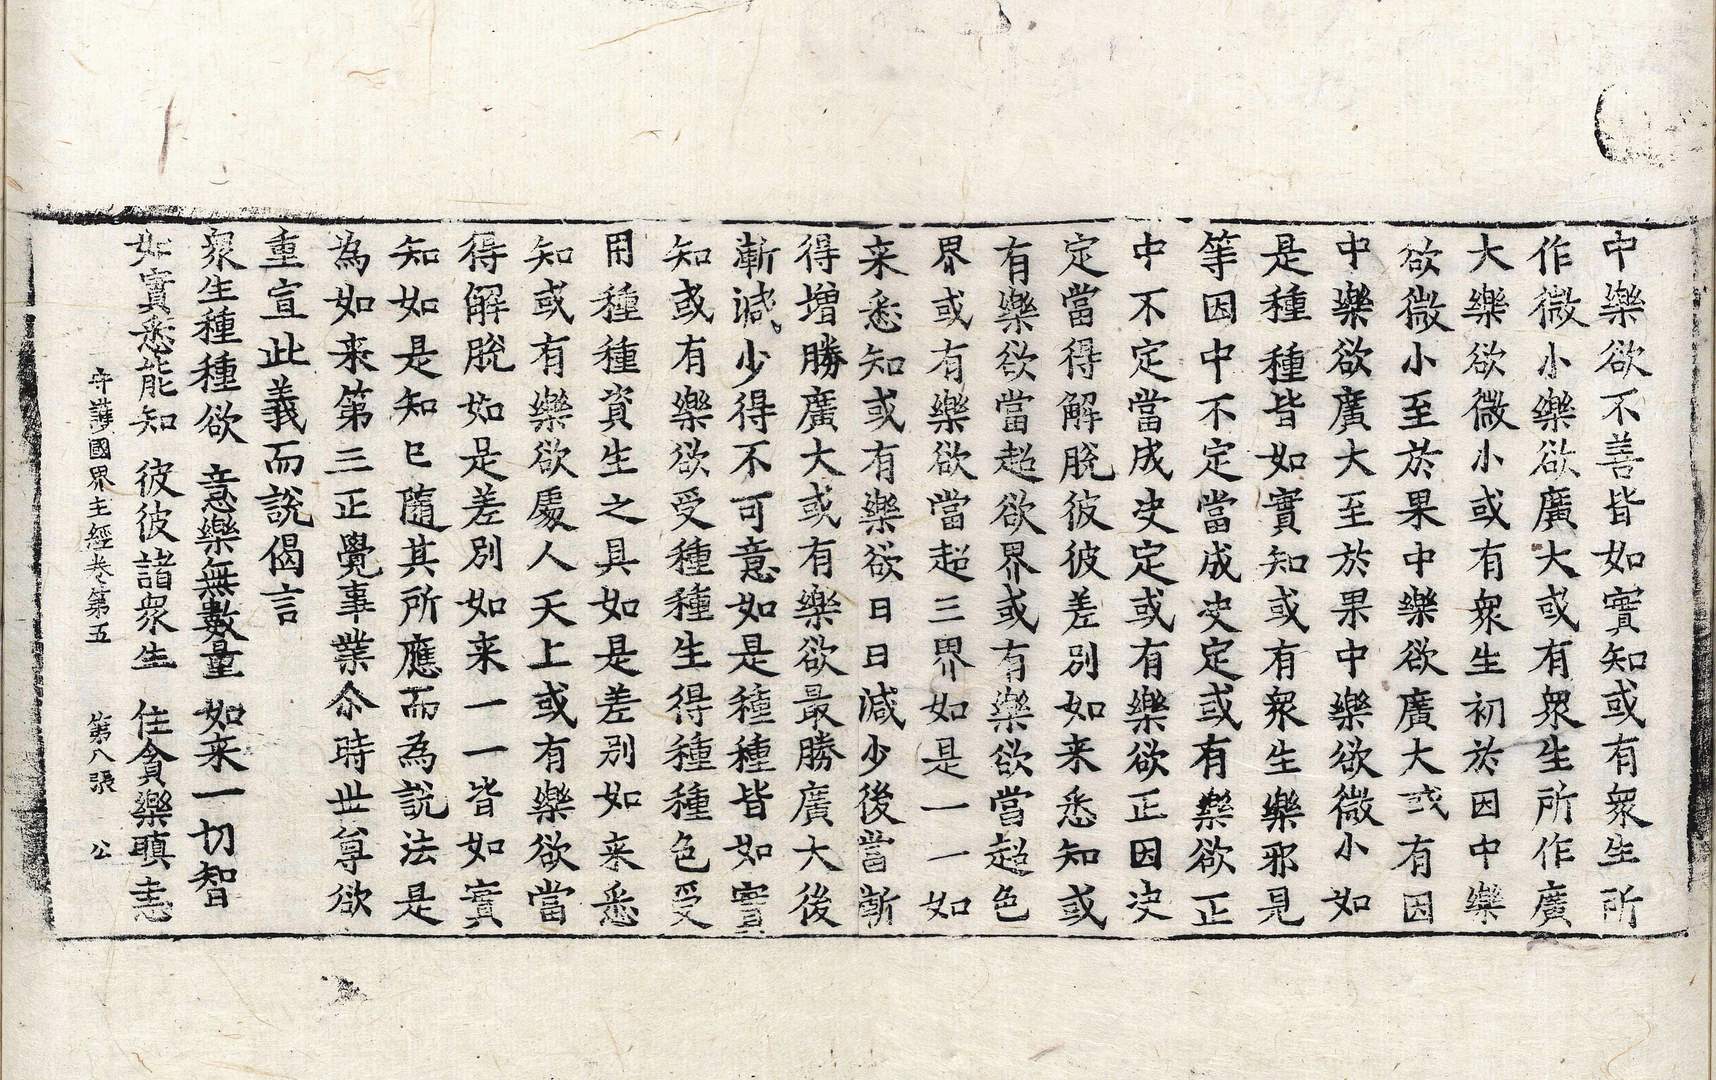 中樂欲不善皆如實知或有衆生所
作微小樂欲廣大或有衆生所作廣
大樂欲微小或有衆生初於因中樂
欲微小至於果中樂欲廣大或有因
中樂欲廣大至於果中樂欲微小如
是種種皆如實知或有衆生樂邪見
等因中不定當成决定或有樂欲正
中不定當成决定或有樂欲正因决
定當得解脫彼彼差别如来悉知或
有樂欲當超欲界或有樂欲當超色
界或有樂欲當超三界如是一一如
来悉知或有樂欲日日減少後當漸
得增勝廣大或有樂欲最勝廣大後
漸減少得不可意如是種種皆如實
知或有樂欲受種種生得種種色受
用種種資生之具如是差别如来悉
知或有樂欲處人天上或有樂欲當
得解脫如是差别如来一一皆如實
知如是知已隨其所應而為說法是
為如来第三正覺事業尒時世尊欲
重宣此義而說偈言
衆生種種欲 意樂無數量 如来一切智
如實悉能知 彼彼諸衆生 住貪樂瞋恚
守護國界主經卷第五 第八張 公